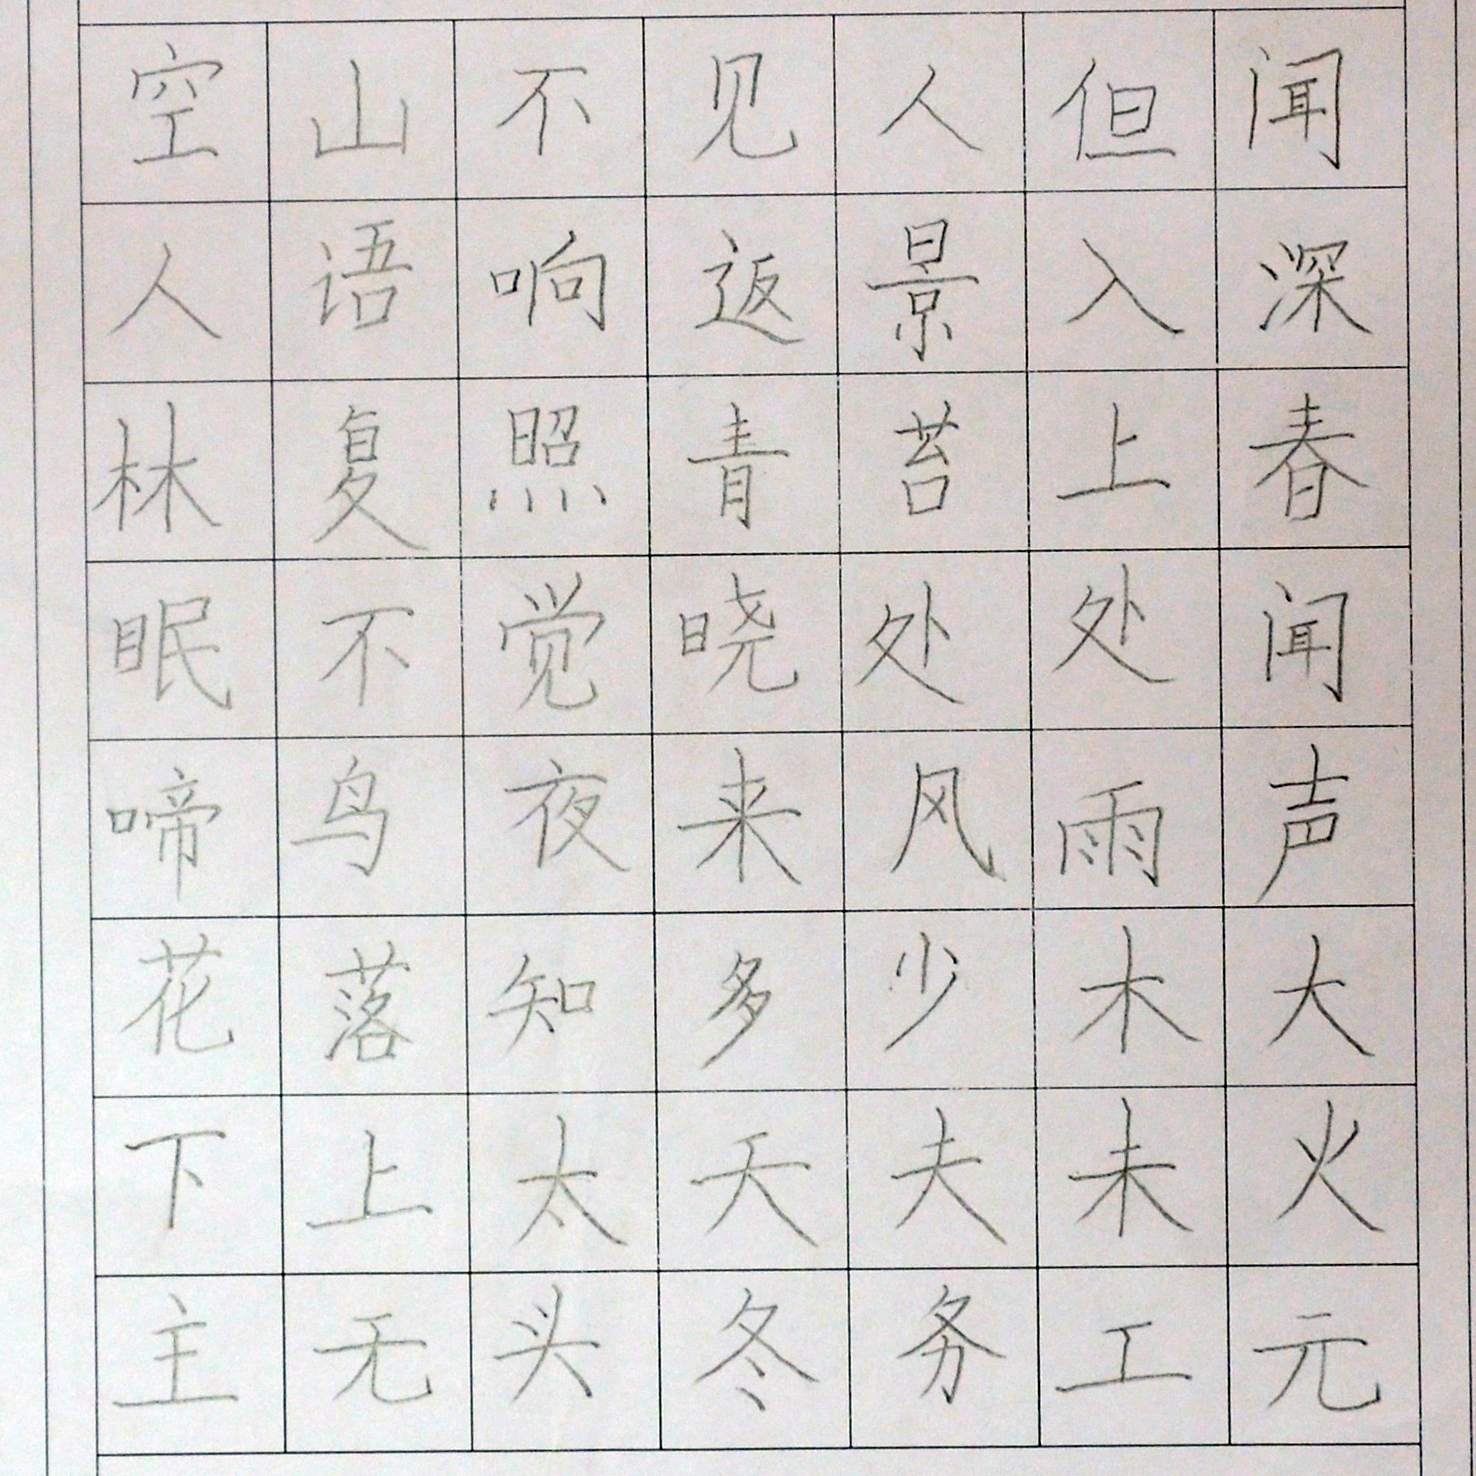 空山不见人但闻
人语响返景入深
林复照青苔上春
眠不觉晓处处闻
啼鸟夜来风雨声
花落知多少木大
下上太天夫未火
主无头冬务工元